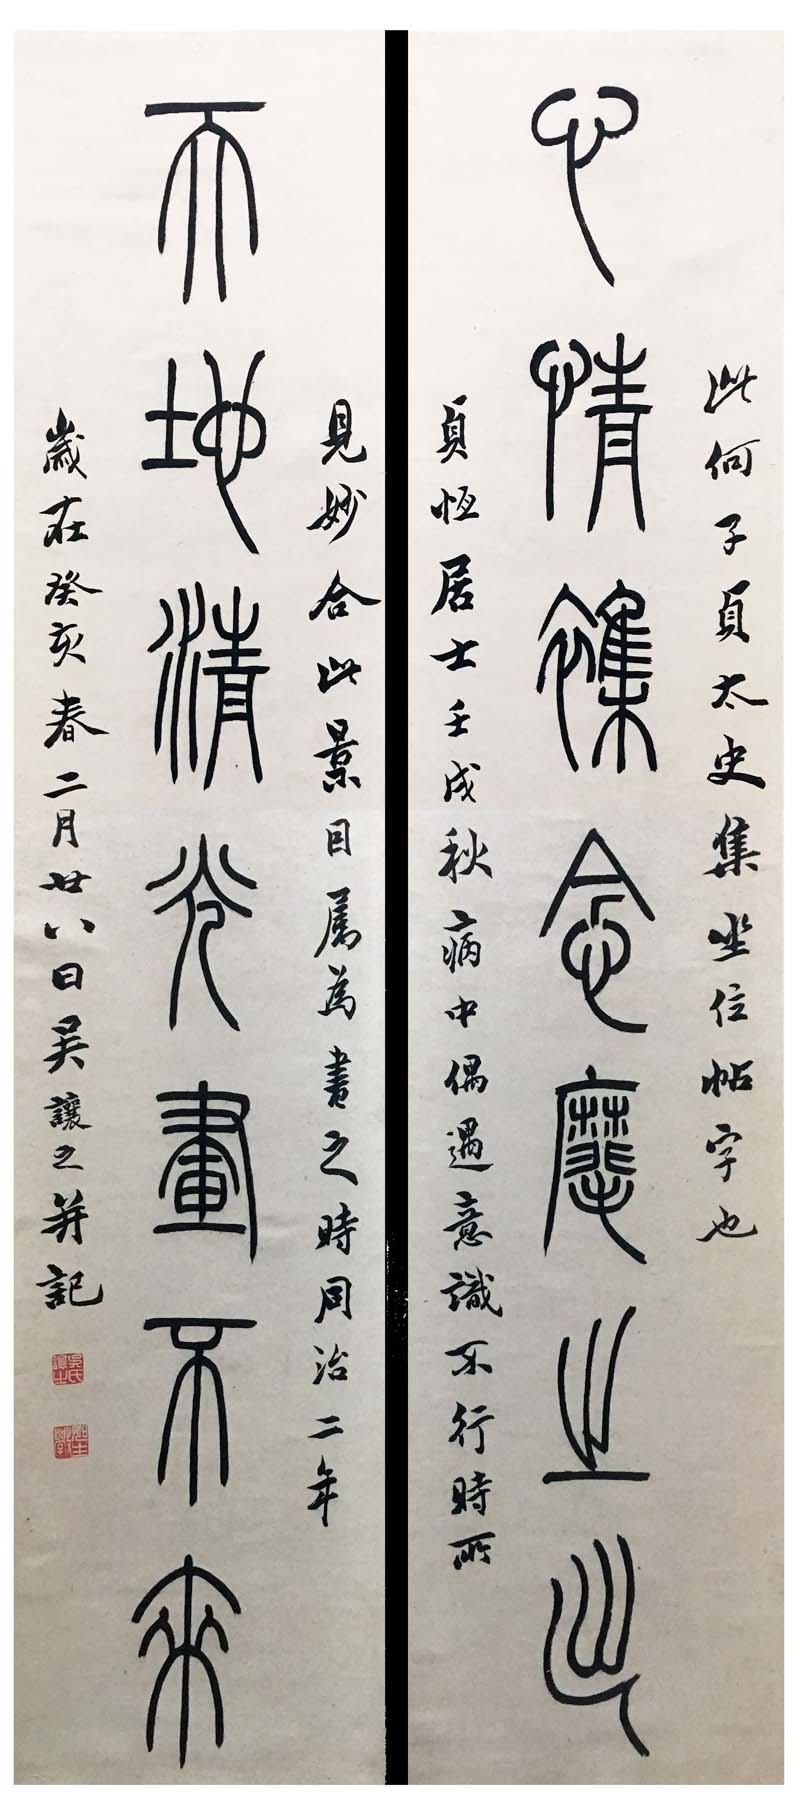 此何子貞太史集坐位帖字也
心情雜念麾之出
貞恆居士壬戌秋病中偶遇意識不行時所
見妙合此景因屬為書之時同治二年
天地清光畫不來
歲在癸亥春二月廿八日吳讓之并記